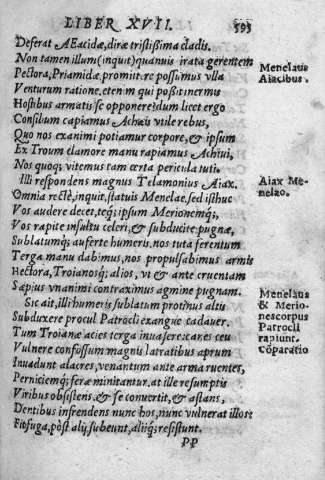 LIBER XVII. 593
Deferat AEacidæ, diræ tristißima cladis.
Non tamen illum (inquit) quamuis irata gerentem
Pectora, Priamidæ promittere possumus vlla
Venturum ratione. eten im qui poßit inermis
Hostibus armatis se opponere? dum licet ergo
Consilium capiamus Achæis vtile rebus,
Quo nos exanimi potiamur corpore, & ipsum
Ex Troum clamore manu rapiamus Achiui,
Nos quoq; vitemus tam certa pericula tuti.
Illi respondens magnus Telamonius Aiax.
Omnia rectè, inquit, statuis Menelae, sed isthuc
Vos audere decet, teq; ipsum Merionemq;,
Vos rapite insultu celeri, & subducite pugnæ,
Sublatumq; auferte humeris. nos tuta ferentum
Terga manu dabimus, nos propulsabimus armis
Hectora, Troianosq; alios, vt & ante cruentam
Sæpius vnanimi contraximus agmine pugnam.
Sic ait, illi humeris sublatum protinus altis
Subduxere procul Patrocli exangue cadauer.
Tum Troianæ acies terga inuasere: ceu
Vulnere confossum magnis latratibus aprum
Inuadunt alacres, venantum ante arma ruentes,
Perniciemq; feræ minitantur. at ille resumptis
Viribus obsistens & se conuertit, & astans,
Dentibus infrendens nunc hos, nunc vulnerat illos:
Fit fuga, pòst alij subeunt, alijq; resistunt.
PP
Menelaus
Aiacibus.
Aiax Me-
nelao.
Menelaus
& Merio-
nes corpus
Patrocli
rapiunt.
Cōparatio